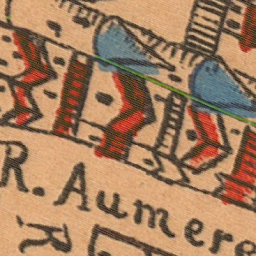 R. Aumere
R